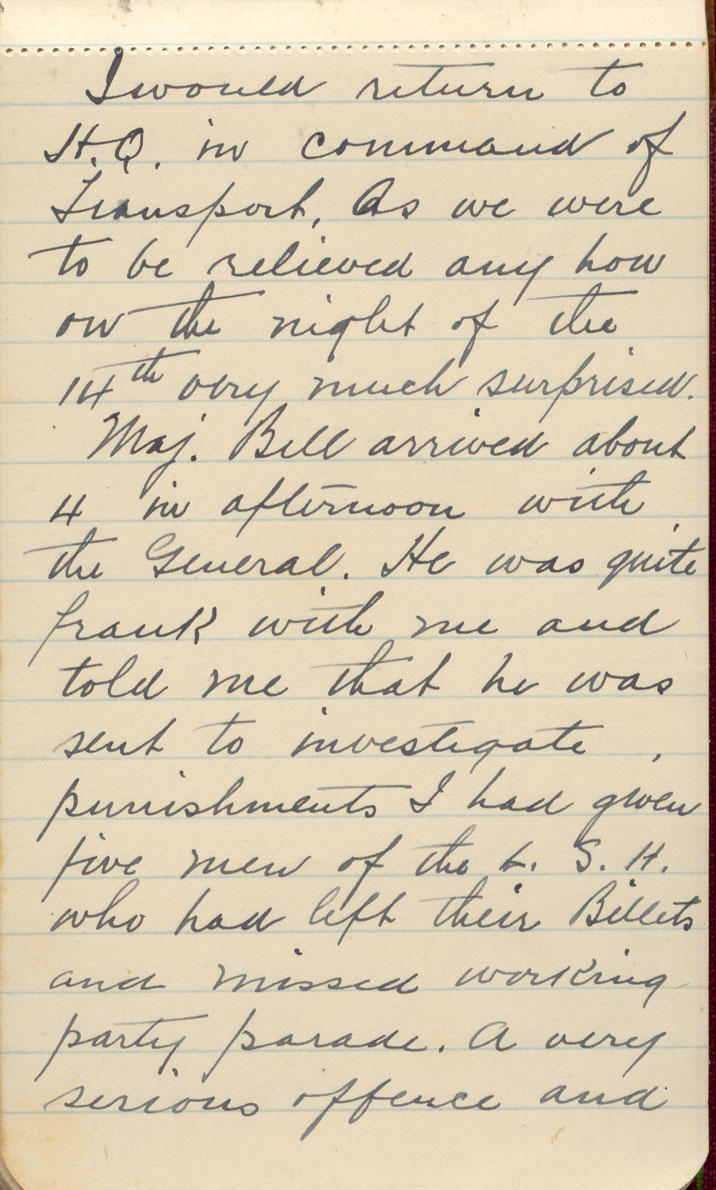 I would return to
H.Q. in command of
Transport, As we were
to be relieved any how
on the night of the
14th very much surprised.
Maj. Bell arrived about
4 in afternoon with
the General. He was quite
frank with me and
told me that he was
sent to investigate,
punishments I had given
five men of the L. S. H.
who had left their Billets
and missed working
party parade. A very
serious offence and